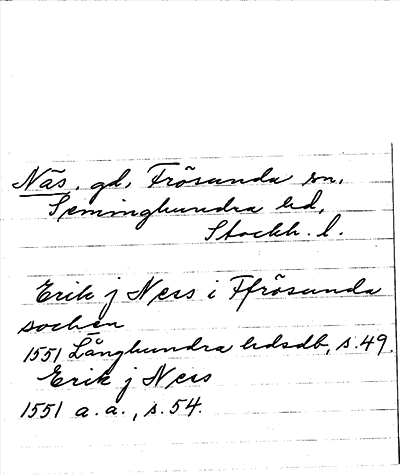 Näs, gd, Frösunda sn,
Seminghundra hd,
Stockh. l.
Erik j Ners i Ffrösunda
sochen
1551 Långhundra hdsdb, s. 49.
Erik j Ners
1551 a. a., s. 54.